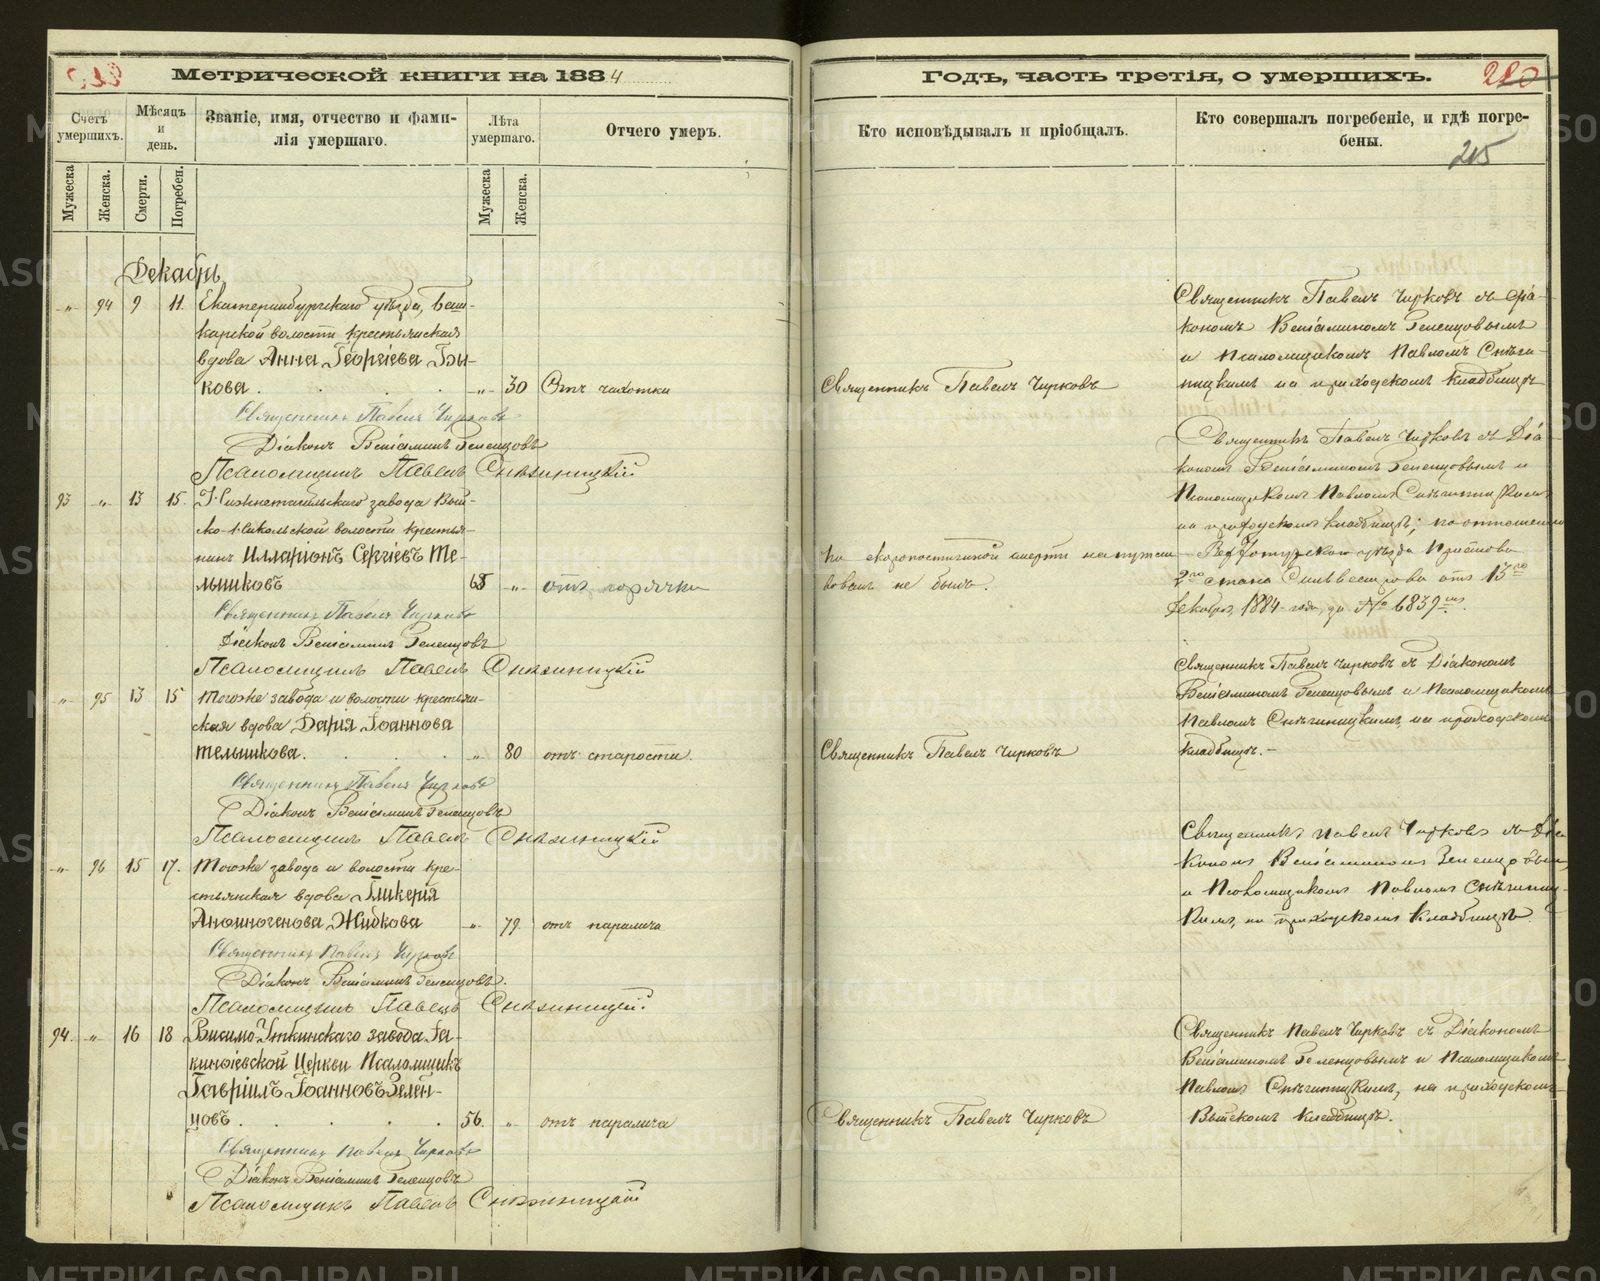 Метрической книги на 1884
Счетъ умершихъ.
Мѣсяцъ и день.
Званіе, имя, отчество и фами-
лія умершаго.
Лѣта умершаго.
Отчего умеръ.
Мужеска
Женска.
Смерти.
Погребен.
Мужеска
Женска.
Декабрь
„ 94 9 11. Екатеринбургскаго уѣзда, Баш-
карской волости крестьянская
вдова Анна Георгіева Бы-
кова . „ 30 Отъ чахотки
Священникъ Павелъ Чирковъ
Діаконъ Веніаминъ Зеленцовъ
Псаломщикъ Павелъ Снѣгиницкій
93 „ 13 15. Н. Тагильскаго завода Вый-
ско-Никольской волости крестья-
нинъ Илларіонъ Сергіевъ Те-
льшиковъ 68 „ отъ горячки
Священникъ Павелъ Чирковъ
Діаконъ Веніаминъ Зеленцовъ
Псаломщикъ Павелъ Снѣгиницкій
„ 95 13 15 Тогоже завода и волости крестьян-
ская вдова Дарія Іоаннова
Тельшикова. „ 80 отъ старости.
Священникъ Павелъ Чирковъ
Діаконъ Веніаминъ Зеленцовъ
Псаломщикъ Павелъ Снѣгиницкій
„ 96 15 17. Тогоже завода и волости кре-
стьянская вдова Гликерія
Анѳиногенова Жибкова „ 79. отъ паралича
Священникъ Павелъ Чирковъ
Діаконъ Веніаминъ Зеленцовъ.
Псаломщикъ Павелъ Снѣгиницкій
94. „ 16 18 Висимо-Уткинскаго завода
киноіевской Церкви Псаломщикъ
Гавріилъ Іоанновъ Зелен-
цовъ . 56. „ отъ паралича
Священникъ Павелъ Чирковъ
Діаконъ Веніаминъ Зеленцовъ
Псаломщикъ Павелъ Снѣгиницкій
Годъ, часть третія, о умершихъ.
220
Кто исповѣдывалъ и пріобщалъ.
Кто совершалъ погребеніе, и гдѣ погре-
бены.
215
Священникъ Павелъ Чирковъ съ діа-
кономъ Веніаминомъ Зеленцовымъ
и Псаломщикомъ Павломъ Снѣги-
Священникъ Павелъ Чирковъ
ницкимъ на приходскомъ кладбищѣ
Священникъ Павелъ Чирковъ съ Діа-
кономъ Веніаминомъ Зеленцовымъ и
Псаломщикомъ Павломъ Снѣгиницкимъ
на приходскомъ кладбищѣ; по отношенію
По скоропостижной смерти напутст-
Верхотурскаго уѣзда Пристава
вованъ не былъ.
2го стана Сильвестрова отъ 13го
Декабря 1884 года, за № 6839
Священникъ Павелъ Чирковъ съ Діакономъ
Веніаминомъ Зеленцовымъ и Псаломщикомъ
Павломъ Снѣгиницкимъ, на приходскомъ
Священникъ Павелъ Чирковъ
кладбищѣ. -
Священникъ Павелъ Чирковъ съ Діа-
кономъ Веніаминомъ Зеленцовымъ
и Псаломщикомъ Павломъ Снѣгиниц-
кимъ, на приходскомъ кладбищѣ
Священникъ Павелъ Чирковъ съ Діакономъ
Веніаминомъ Зеленцовымъ и Псаломщикомъ
Павломъ Снѣгиницкимъ, на приходскомъ
Священникъ Павелъ Чирковъ
Выйскомъ кладбищѣ.
METRIKI.GASO-URAL.RU